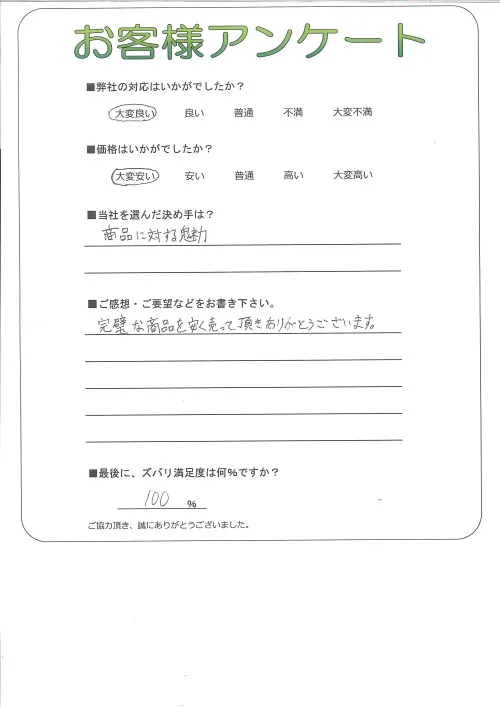 お客様アンケート
■弊社の対応はいかがでしたか？
大変良い 良い 普通 不満 大変不満
■価格はいかがでしたか？
大変安い 安い 普通 高い 大変高い
■当社を選んだ決め手は？
商品に対する魅力
■ご感想・ご要望などをお書き下さい。
完璧な商品を安く売って頂きありがとうございます。
■最後に、ズバリ満足度は何%ですか？
100 %
ご協力頂き、誠にありがとうございました。